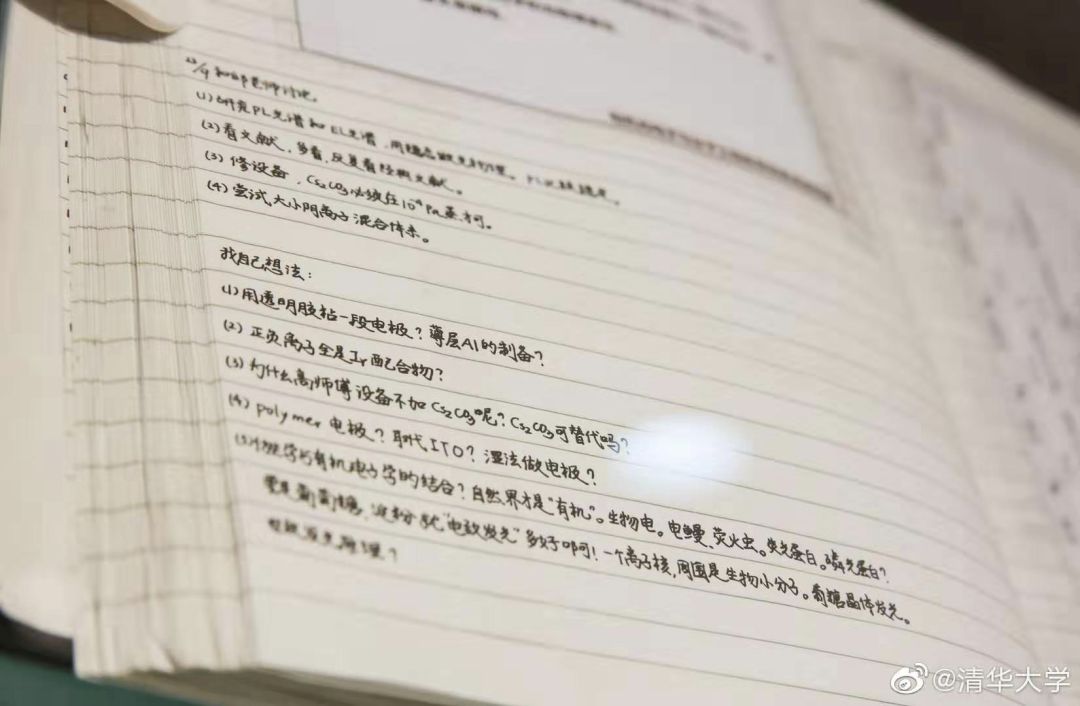 (1)研究PL光谱和EL光谱,用
(2)看文献,多看,反复看经典文献。
(3)修设备,Cs₂CO₃必须在10⁻⁴Pa蒸才可。
(4)尝试大小阴离子混合体系。
我自己想法:
(1)用透明胶粘一段电极?薄层Al的制备?
(2)正负离子全是Ir配合物?
(3)为什么高师傅设备不加Cs₂CO₃呢?Cs₂CO₃可替代吗?
(4)polymer电极?取代ITO?湿法做电极?
(5)生物学与有机电子学的结合?自然界才是“有机”。生物电。电鳗、荧火虫。荧光蛋白。磷光蛋白?
要是葡萄糖、淀粉就“电致发光”多好啊!一个离子核,周围是生物小分子。蔗糖晶体发光。
发光原理?
@清华大学